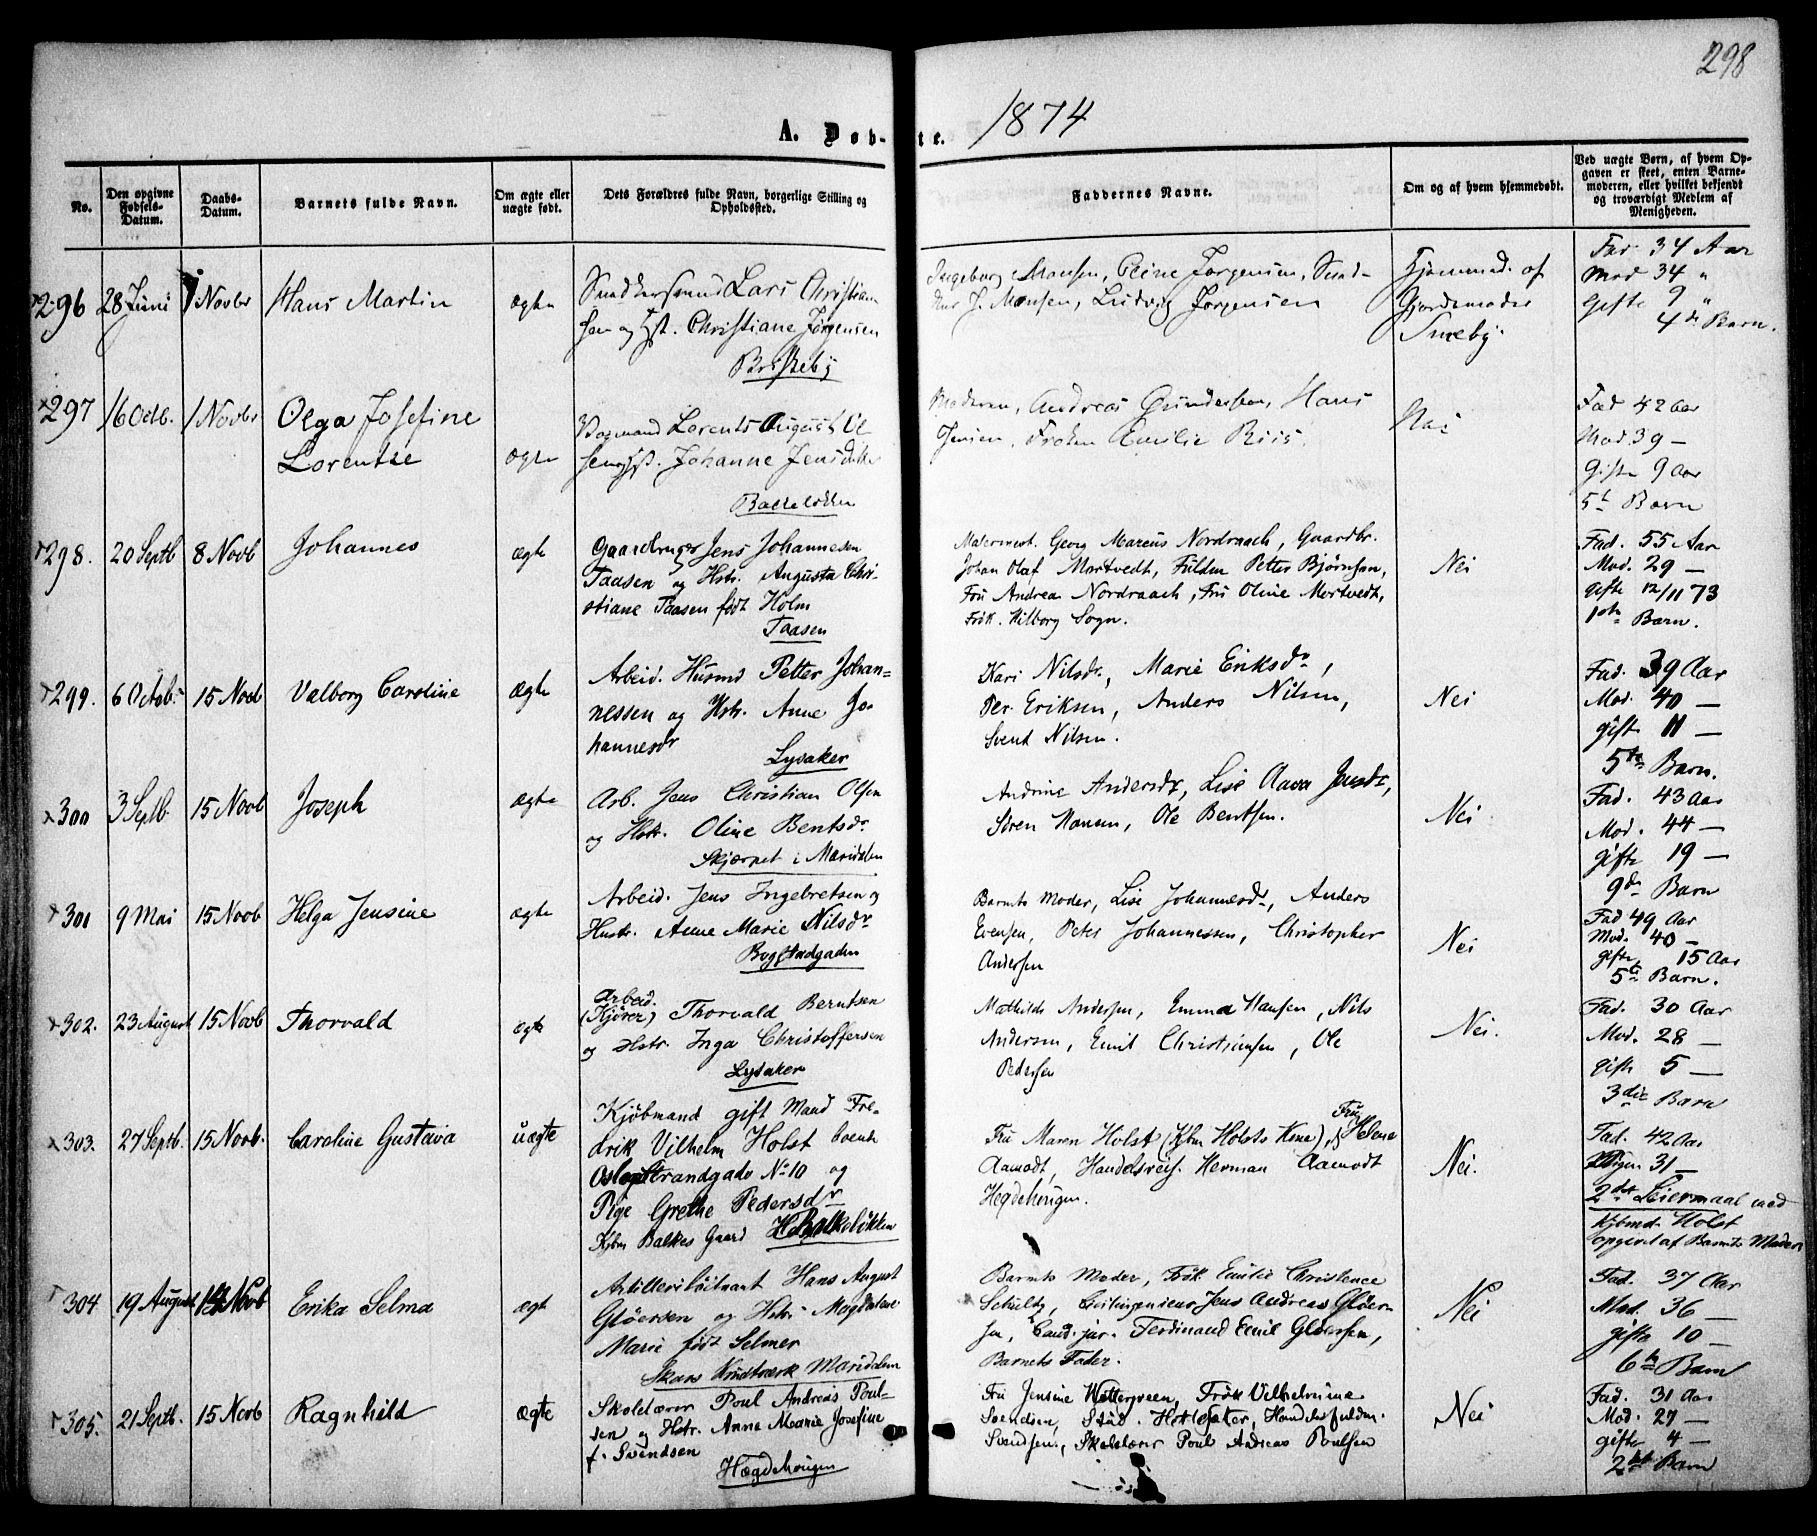 298
A. Døbte. 1874
No.
Den opgivne Fødsels-Datum.
Daabs-Datum.
Barnets fulde Navn.
Om ægte eller uægte født.
Dets Forældres fulde Navn, borgerlige Stilling og Opholdssted.
Faddernes Navne.
Om og af hvem hjemmedøbt.
Ved uægte Børn, af hvem Opgaven er skeet, enten Barnemoderen, eller hvilket bekjendt og troværdigt Medlem af Menigheden.
296 28 Juni 1 Novbr Hans Martin ægte
Snedkersvend Lars Christian
sen og Hst. Christiane Jørgensen
Briskeby
Ingeborg Monsen, Oline Jørgensen, Sned
ker J. Monsen, Ludvig Jørgensen
Hjemmed. af
Gjordemoder
Fad. 34 Aar
Mod 34 "
Gifte 9 "
4de Barn.
297 16 Octb. 1 Novbr Olga Josefine
Lorentse ægte
Lorents August Ol
sen og Hst. Johanne Jensdatter
Balkeløkken
Moderen, Andreas Gundersen, Hans
Jensen, Frøken Emilie Riis.
Nei
Fad 42 aar
Mod. 39 —
Gifte 9 Aar
5t Barn
298. 20 Septb 8 Novb Johannes ægte
Gaardbruger Jens Johannesen
Taasen og Hstr. Augusta Chri-
stiane Taasen født Holm
Taasen
Malermest. Georg Marcus Nordraach, Gaardbr.
Johan Olaf Mortvedt, Fuldm Petter Bjørnsen,
Fru Andrea Nordraach, Fru Oline Mortvedt,
Frøk. Hilborg Sogn.
Nei
Fad. 55 Aar
Mod. 29 —
gifte 12/11 73
1ste Barn.
299. 6 Octob. 15 Novb Valborg Caroline ægte
Arbeid. Husmd Petter Johan-
nessen og Hstr. Anne Jo-
hannesdr
Lysaker
Kari Nilsdr, Marie Eriksdr,
Per Eriksen, Anders Nilsen,
Svend Nilsen.
Nei
Fad. 39 Aar
Mod. 40 —
gifte 11 —
5te Barn.
300 3 Septb. 15 Novb Joseph ægte
Arb. Jens Christian Olsen
og Hstr. Oline Bentsdr
Skjærpet i Maridalen
Andrine Andersdr, Lise Aava Jensdr,
Søren Hansen, Ole Bentsen.
Nei
Fad. 43 Aar
Mod. 44 —
gifte 19 —
9de Barn
301 9 Mai 15 Novb Helga Jensine ægte
Arbeid. Jens Ingebretsen og
Hustr. Anne Marie Nilsdr
Bogstadgaden
Barnets Moder, Lise Johannesdr, Anders
Evensen, Peter Johannessen, Christopher
Andersen
Nei
Fad 49 Aar
Mod. 40 —
gifte 15 Aar
5te Barn.
302. 23 August 15 Novb Thorvald ægte
Arbeid.
(Kjører) Thorvald Berntsen
og Hstr. Inga Christoffersen
Lysaker
Mathilde Andersen, Emma Hansen, Nils
Andersen, Emil Christiansen, Ole
Pedersen
Nei.
Fad. 30 Aar
Mod. 28 —
gifte 5 —
3die Barn
303. 27 Septb. 15 Novb. Caroline Gustava uægte
Kjøbmand gift Mand Fre-
drik Vilhelm Holst boende
Oslo Strandgade No 10 og
Pige Grethe Pedersdr
Kjbm Balkes Gaard Balkeløkken
Fru Maren Holst (Kjbm Holsts Kone), Frøk Helene
Aamodt, Handelsreis. Herman Aamodt
Hegdehaugen.
Nei.
Fad. 42 Aar
Pigen 31 —
2det Leiermaal med
Kjbmd. Holst
opgivet af Barnets Moder
304 19 August 15 Novb Erika Selma ægt
Artillerilöitnant Hans August
Gløersen og Hstr. Magdalene
Marie født Selmer
Skars Krudtværk Maridalen
Barnets Moder, Frøk Emilie Christence
Schultz, Civilingeniør Jens Andreas Gløer-
sen, Cand. jur. Ferdinand Emil Gløersen,
Barnets Fader.
Nei
Fad. 37 Aar
Mod. 36 —
gifte 10 —
6te Barn
305. 21 Septb. 15 Novb Ragnhild ægte
Skolelærer Poul Andreas Poul-
sen og Hstr. Anne Marie Josefine
f. Svendsen
Hægdehougen
Fru Jensine Wettergreen, Frøk Vilhelmine
Svendsen, Stud. Hot. Sæter, Handelsfuldm.
Svendsen, Skolelærer Poul Andreas Poulsen
Nei
Fad. 31 Aar
Mod. 27 —
gifte 4 —
2det Barn